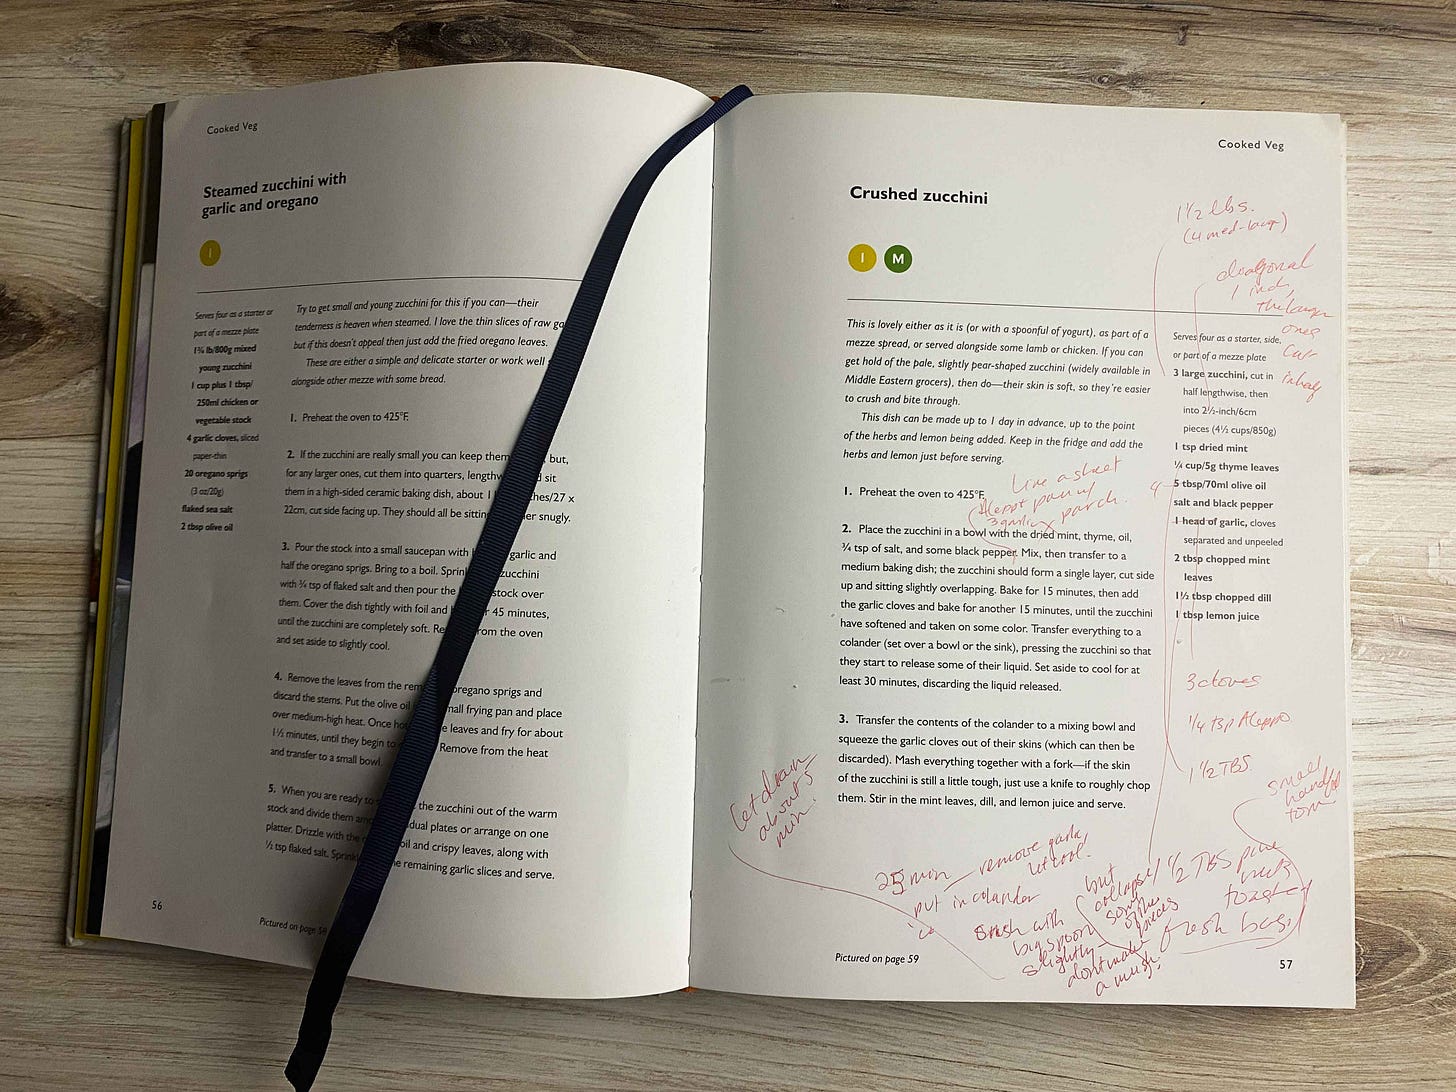 Cooked Veg
Steamed zucchini with
garlic and oregano
I
Serves four as a starter or
part of a mezze plate
1¾ lb/800g mixed
young zucchini
1 cup plus 1 tbsp/
250ml chicken or
vegetable stock
4 garlic cloves, sliced
paper-thin
20 oregano sprigs
(3 oz/20g)
flaked sea salt
2 tbsp olive oil
Try to get small and young zucchini for this if you can—their
tenderness is heaven when steamed. I love the thin slices of raw
but if this doesn't appeal then just add the fried oregano leaves.
These are either a simple and delicate starter or work well
alongside other mezze with some bread.
1. Preheat the oven to 425°F.
2. If the zucchini are really small you can keep them but,
for any larger ones, cut them into quarters, sit
them in a high-sided ceramic baking dish, about 27 x
22cm, cut side facing up. They should all be snugly.
3. Pour the stock into a small saucepan with garlic and
half the oregano sprigs. Bring to a boil. zucchini
with ¾ tsp of flaked salt and then pour the stock over
them. Cover the dish tightly with foil and 45 minutes,
until the zucchini are completely soft. from the oven
and set aside to slightly cool.
4. Remove the leaves from the oregano sprigs and
discard the stems. Put the olive oil frying pan and place
over medium-high heat. Once leaves and fry for about
1½ minutes, until they begin to Remove from the heat
and transfer to a small bowl.
5. When you are ready to the zucchini out of the warm
stock and divide them plates or arrange on one
platter. Drizzle with the oil and crispy leaves, along with
½ tsp flaked salt. remaining garlic slices and serve.
56
Pictured on page
Cooked Veg
Crushed zucchini
I M
1½ lbs.
(4 med-large)
diagonal
1 inch,
the larger
ones
cut
in half
This is lovely either as it is (or with a spoonful of yogurt), as part of a
mezze spread, or served alongside some lamb or chicken. If you can
get hold of the pale, slightly pear-shaped zucchini (widely available in
Middle Eastern grocers), then do—their skin is soft, so they're easier
to crush and bite through.
This dish can be made up to 1 day in advance, up to the point
of the herbs and lemon being added. Keep in the fridge and add the
herbs and lemon just before serving.
1. Preheat the oven to 425°F.
Line a sheet
pan w/
parch.
Aleppo
3 garlic
2. Place the zucchini in a bowl with the dried mint, thyme, oil,
¾ tsp of salt, and some black pepper. Mix, then transfer to a
medium baking dish; the zucchini should form a single layer, cut side
up and sitting slightly overlapping. Bake for 15 minutes, then add
the garlic cloves and bake for another 15 minutes, until the zucchini
have softened and taken on some color. Transfer everything to a
colander (set over a bowl or the sink), pressing the zucchini so that
they start to release some of their liquid. Set aside to cool for at
least 30 minutes, discarding the liquid released.
3. Transfer the contents of the colander to a mixing bowl and
squeeze the garlic cloves out of their skins (which can then be
discarded). Mash everything together with a fork—if the skin
of the zucchini is still a little tough, just use a knife to roughly chop
them. Stir in the mint leaves, dill, and lemon juice and serve.
Serves four as a starter, side,
or part of a mezze plate
3 large zucchini, cut in
half lengthwise, then
into 2½-inch/6cm
pieces (4½ cups/850g)
1 tsp dried mint
¼ cup/5g thyme leaves
4
5 tbsp/70ml olive oil
salt and black pepper
1 head of garlic, cloves
separated and unpeeled
2 tbsp chopped mint
leaves
1½ tbsp chopped dill
1 tbsp lemon juice
3 cloves
¼ tsp Aleppo
1½ TBS
small
handful
torn
let drain
about 5
min.
25 min remove garlic
let cool.
put in colander
smsh with
big spoon
slightly—
dont make
a mush.
but
collapse
some
of the
pieces
1½ TBS pine
nuts
toasted
fresh basil
Pictured on page 59
57